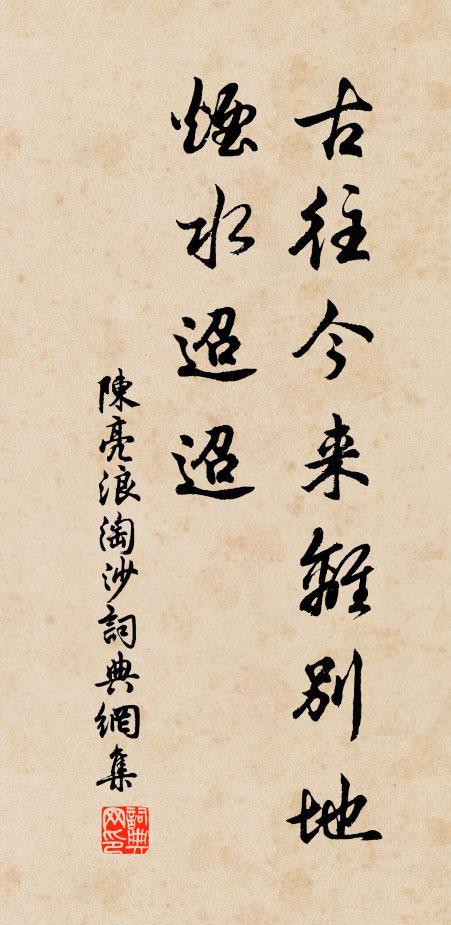 古往今来離別地
煙水迢迢
陳亮浪淘沙詞典網集
詞典网印